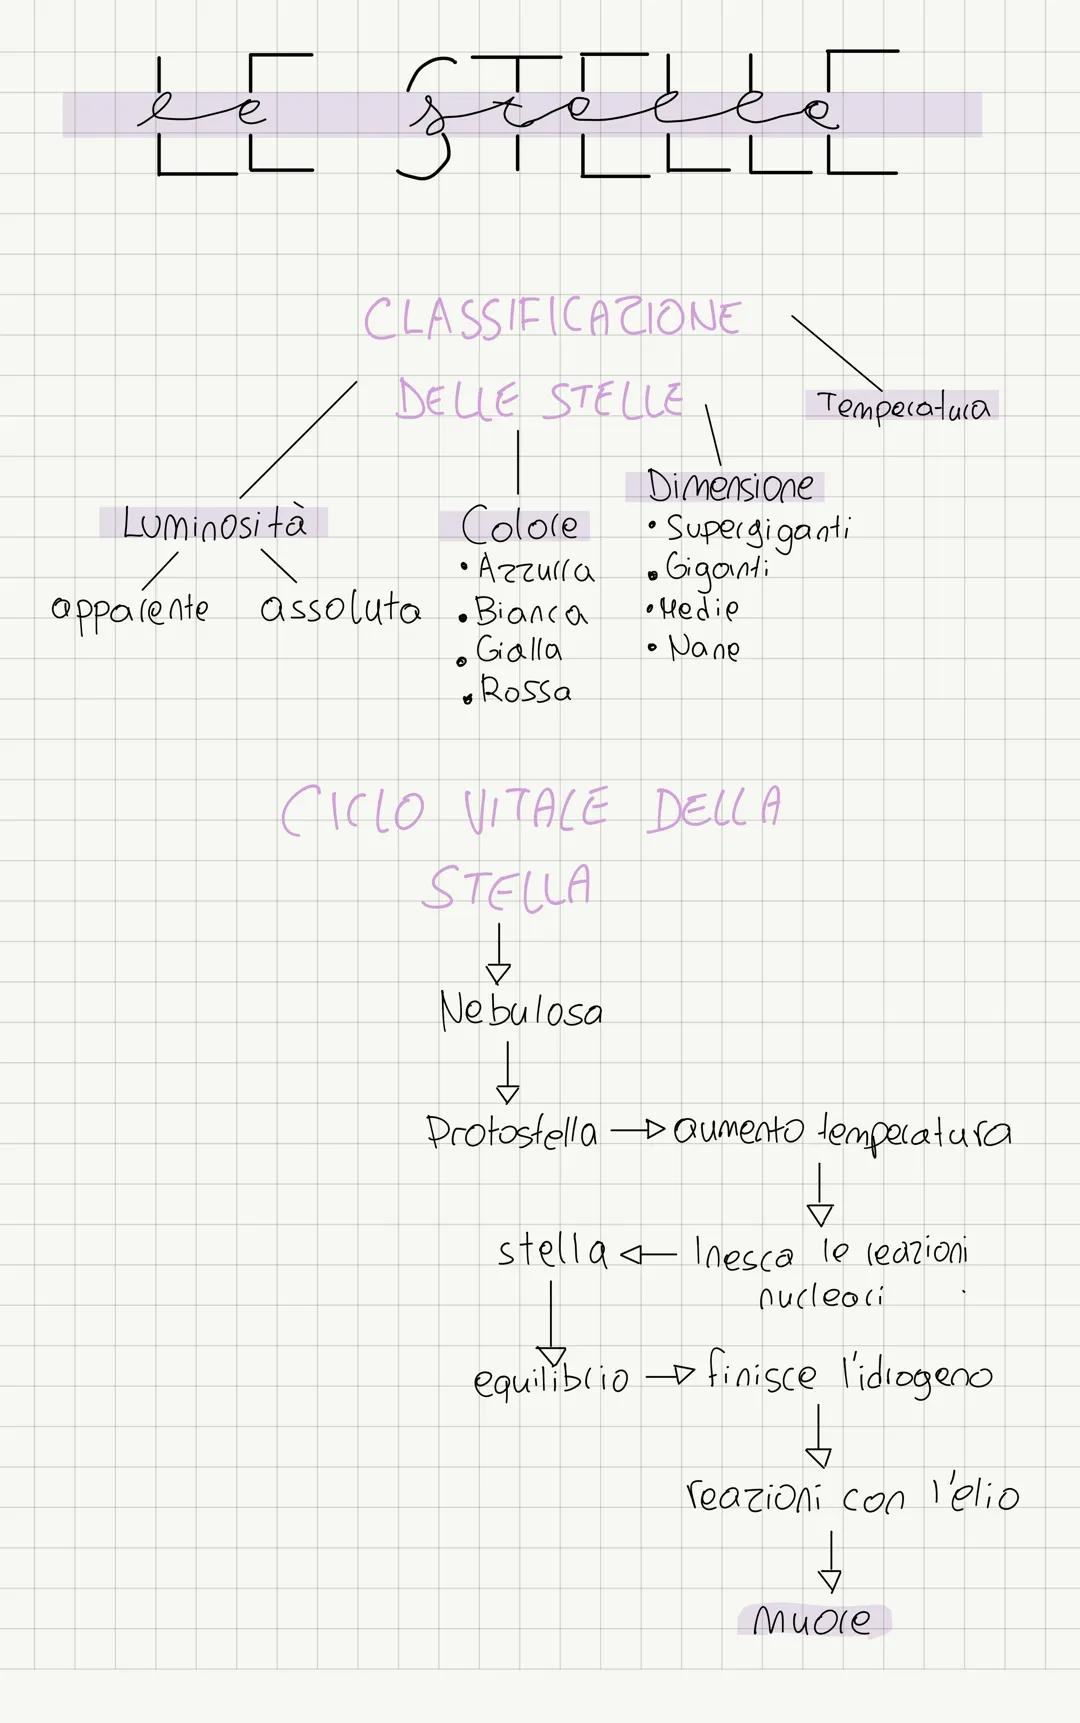 LE STELLE
le stelle
CLASSIFICAZIONE
DELLE STELLE
Temperatura
Luminosità
apparente assoluta
Colore
• Azzurra
• Bianca
• Gialla
• Rossa
Dimensione
• Supergiganti
• Giganti
• Medie
• Nane
CICLO VITALE DELLA
STELLA
Nebulosa
Protostella → aumento temperatura
stella ← Inesca le reazioni
nucleari
equilibrio → finisce l'idrogeno
reazioni con l'elio
Muore